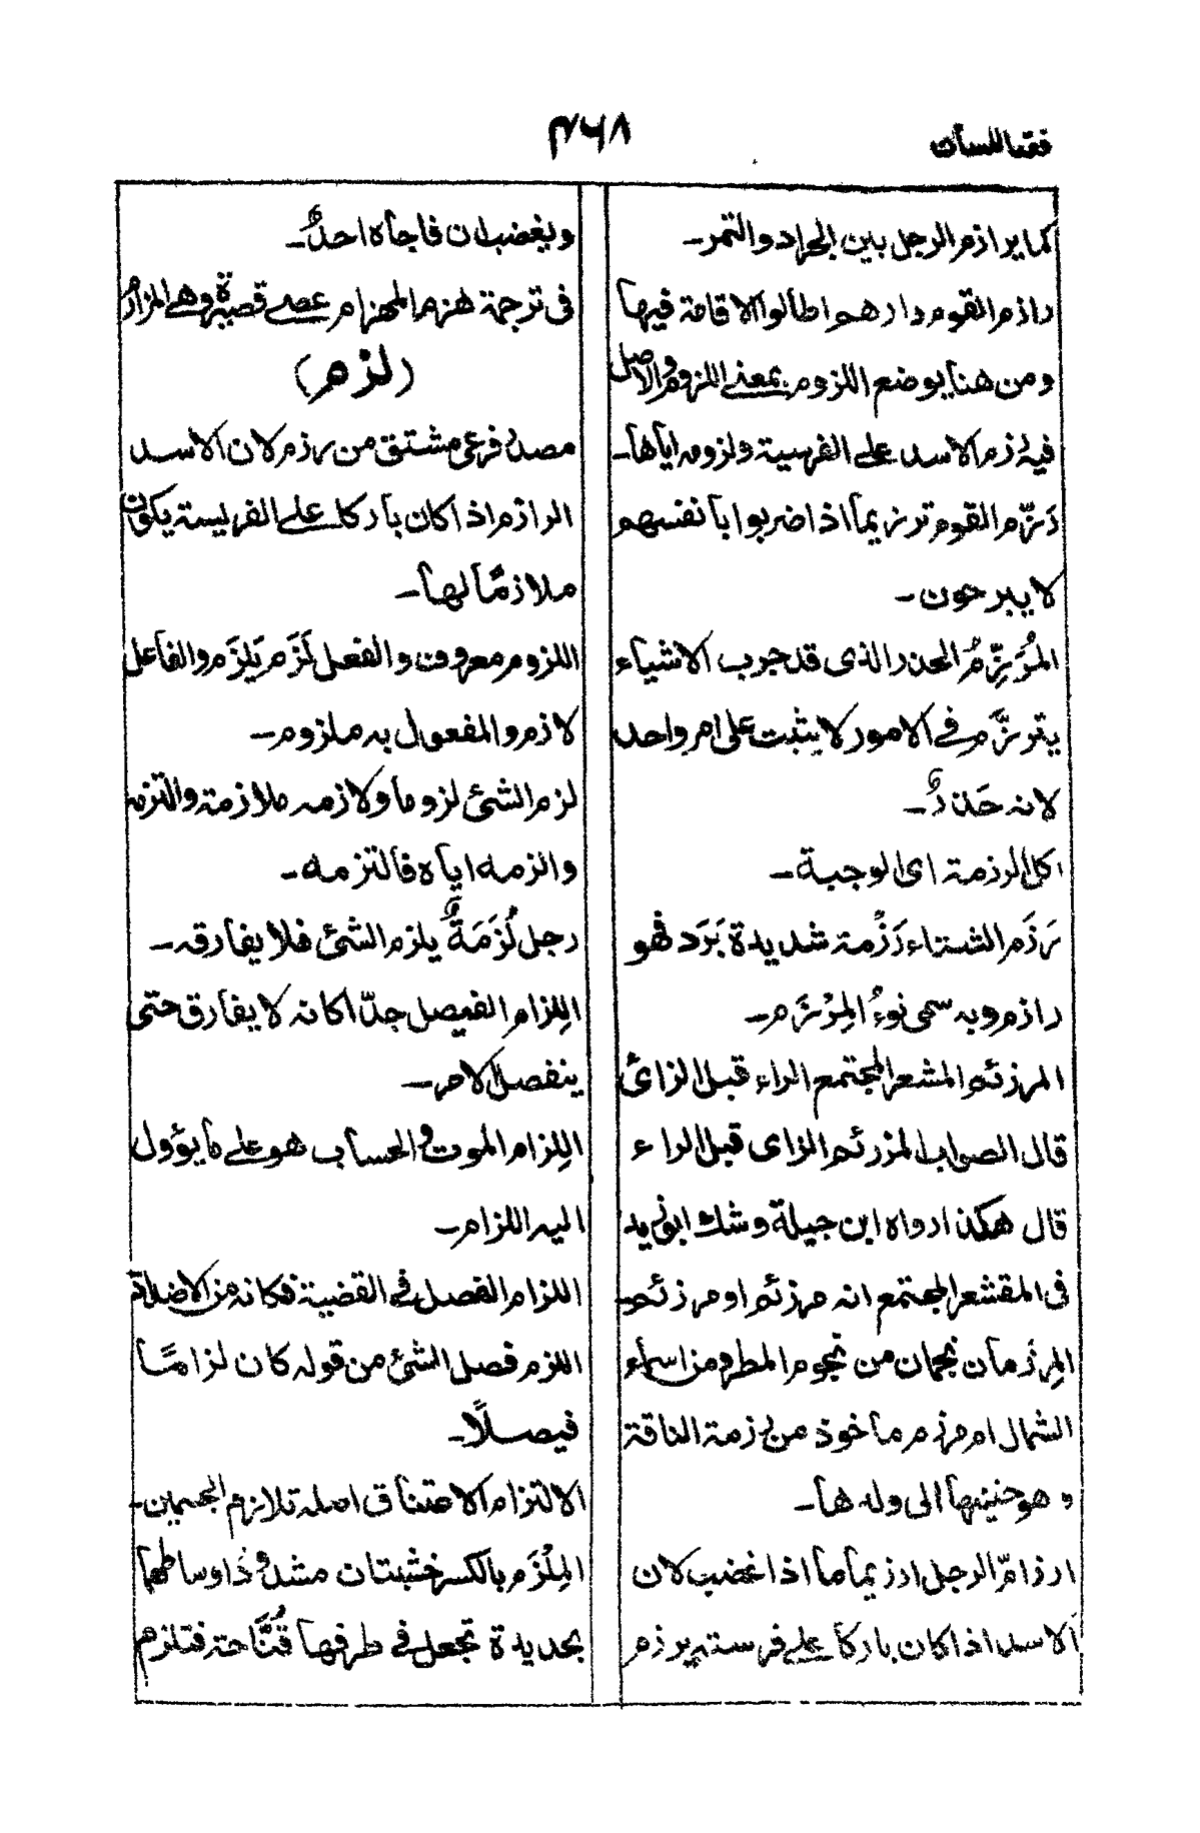 فقه اللسان
٤٦٨
كما يرازم الرجل بين الجراد والتمر۔
رازم القوم دارهم اطالوا الاقامة فيها
ومن هنا يوضع اللزوم بمعنى اللزوم والاصل
فيه رزم الاسد على الفريسة ولزومه اياها۔
رَزّم القوم ترزيما اذا ضربوا بانفسهم
لا يبرحون۔
المُرَزِّمُ الحذر الذى قد جرب الاشياء
يترزَّم فى الامور لا يثبت على امر واحد
لانه حَذِرٌ۔
اكل الرزمة اى الوجبة۔
رَزَم الشتاء رَزْمة شديدة بَرَد فهو
رازم وبه سمى نوءُ المِرْزَم۔
المرزئم المشعر المجتمع الراء قبل الزائ
قال الصواب المزرئم الزاى قبل الراء
قال هكذا رواه ابن جبلة وشك ابو زيد
فى المقشعر المجتمع انه مرزئم او مرزئم
المِرزمان نجمان من نجوم المطر ومن اسماء
الشمال ام مرزم ماخوذ من رزمة الناقة
وهو حنينها الى ولدها۔
ارزامّ الرجل ارزيماما اذا غضب لان
الاسد اذا كان باركا على فرسته يرزم
ويغضب ان فاجأه احدٌ۔
فى ترجمة هزم المهزام عصى قصيرة وهى المرزام
(لزم)
مصدر فرعى مشتق من رزم لان الاسد
الرازم اذا كان باركا على الفريسته يكون
ملازمًا لها۔
اللزوم معروف والفعل لَزَم يَلزَم والفاعل
لازم والمفعول به ملزوم۔
لزم الشئ لزوما ولازمه ملازمة والتزمه
والزمه اياه فالتزمه۔
رجل لُزَمَةٌ يلزم الشئ فلا يفارقه۔
اللِزام الفيصل جدّا كانه لا يفارق حتى
ينفصل الامر۔
اللِزام الموت والحساب هو على ما يؤول
اليه اللزام۔
اللزام الفصل فى القضية فكانه من الاضداد
اللزم فصل الشئ من قوله كان لزامًا
فيصلًا۔
الالتزام الاعتناق اصله تلازم الجسمين۔
المِلْزَم بالكسر خشبتان مشدود اوساطهما
بحديدة تجعل فى طرفها قُنَّاحة فتلزم